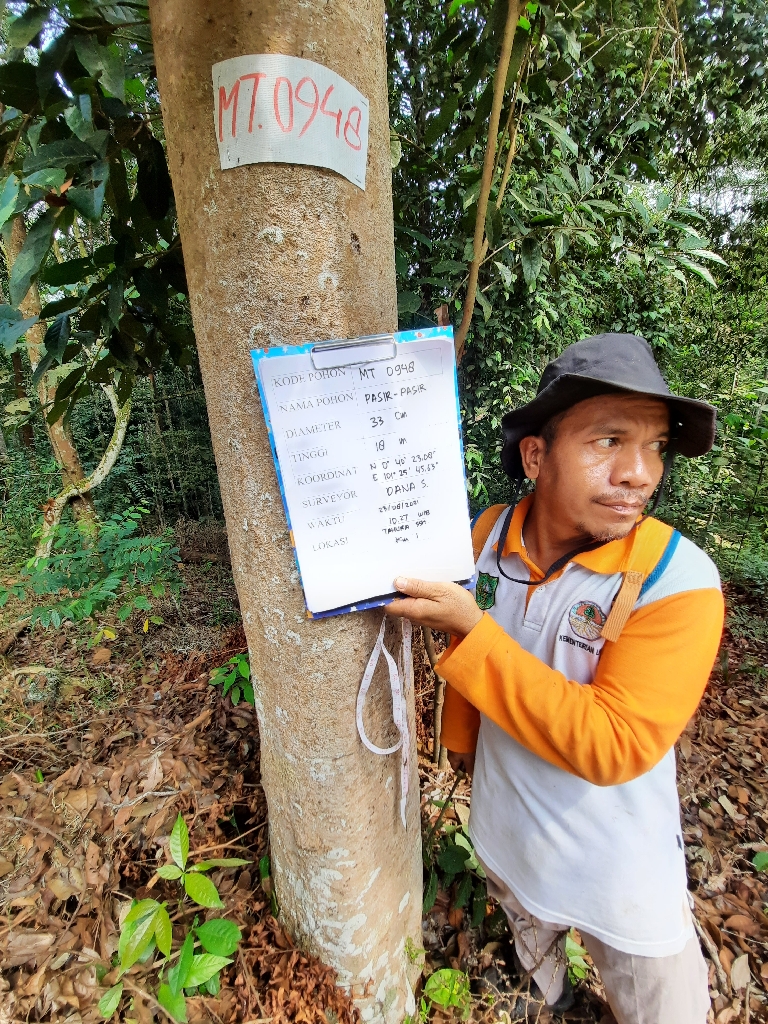 MT.0948
KODE POHON MT 0948
NAMA POHON PASIR-PASIR
DIAMETER 33 Cm
TINGGI 18 m
KOORDINAT N 0° 40' 23.08"
E 101° 25' 45.63"
SURVEYOR DANA S.
WAKTU 23/06/2021
10.27 WIB
LOKASI TAHURA SSH
KEMENTERIAN